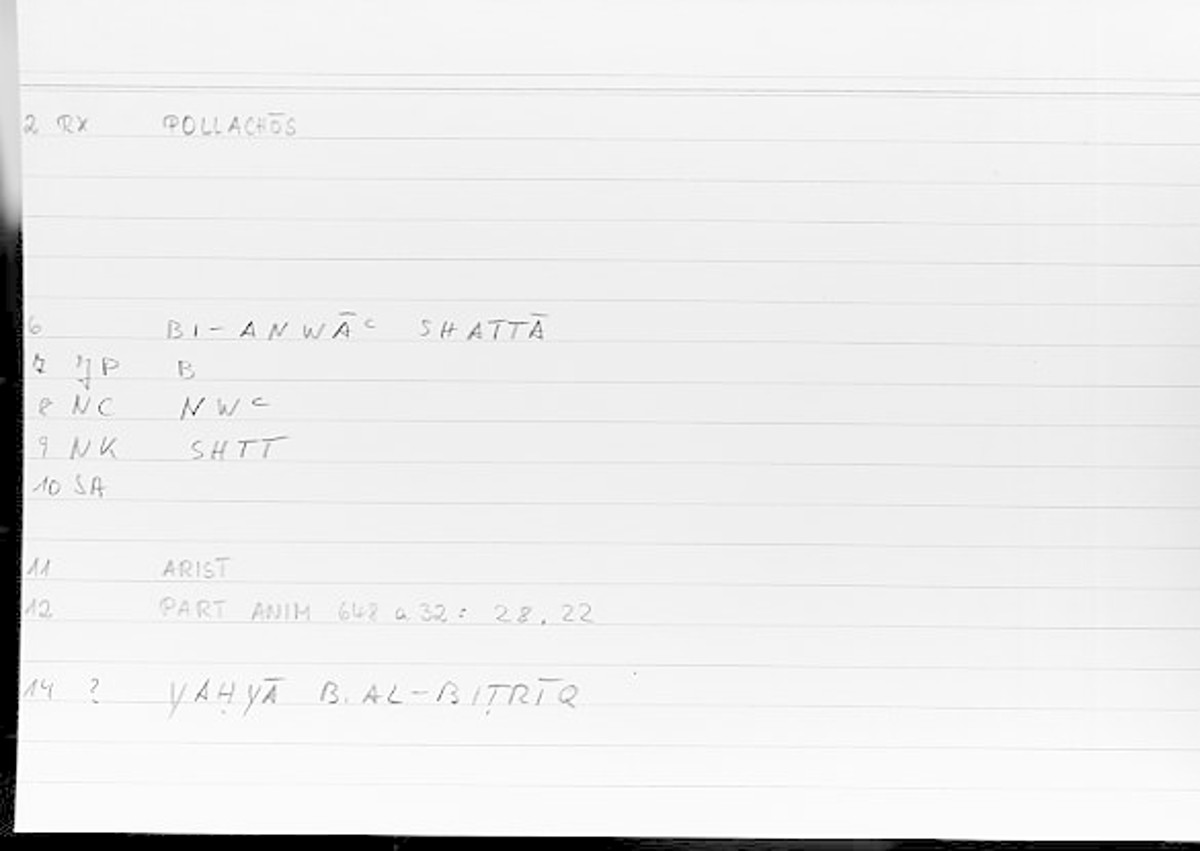 2 RX POLLACHŌS
6 BI-ANWĀʿ SHATTĀ
7 JP B
8 NC NWʿ
9 NK SHTT
10 SA
11 ARIST
12 PART ANIM 648 a 32: 28.22
14 ? YAḤYĀ B. AL-BIṬRĪQ